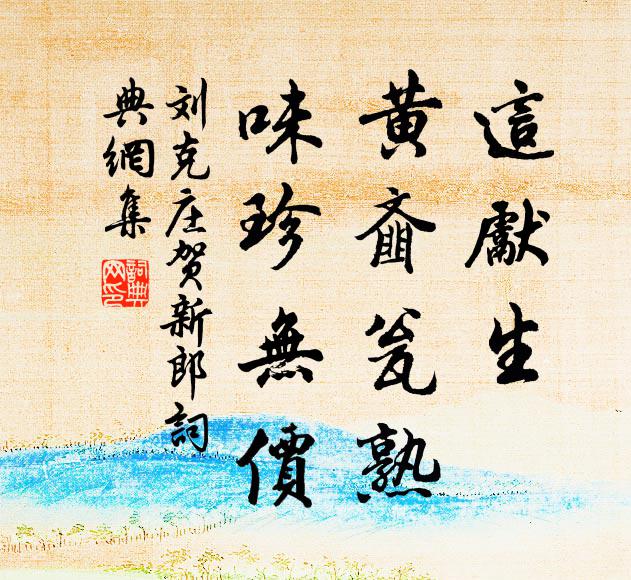 這獻生
黃齑瓮熟
味珍無價
刘克庄贺新郎詞
典網集
詞典
网印